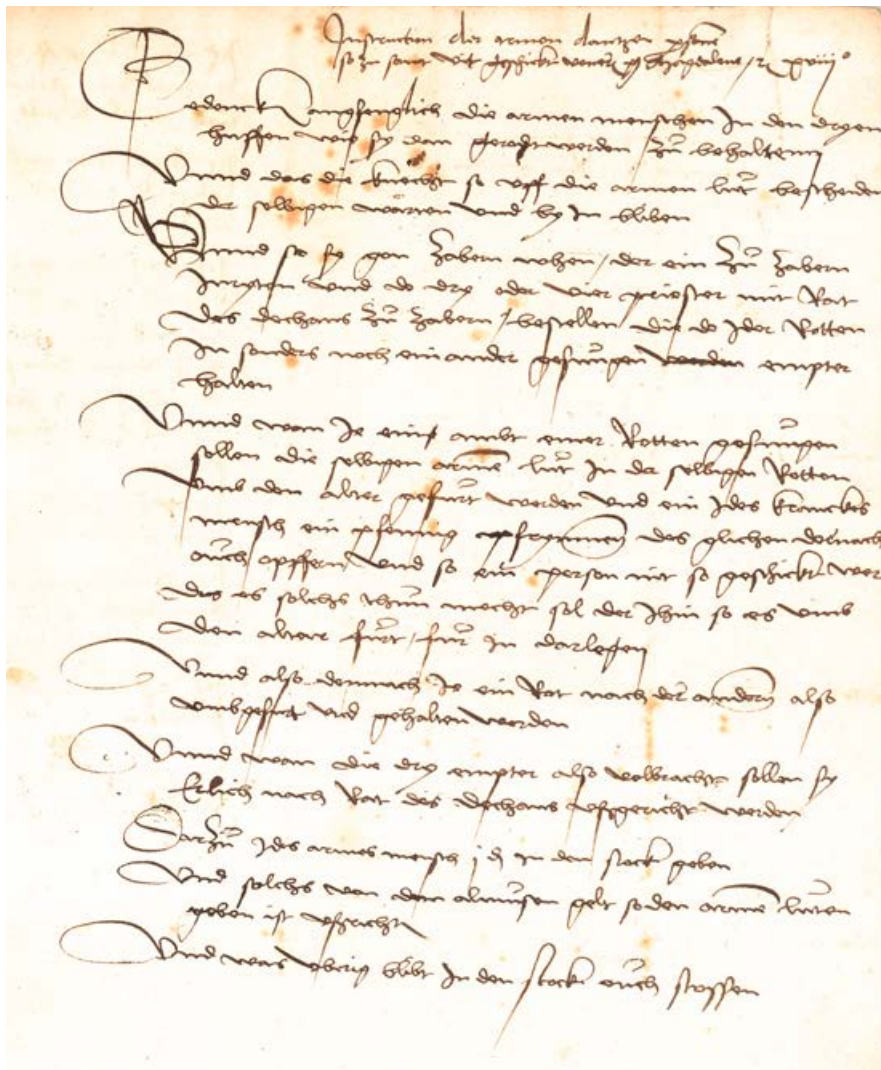 Instruction der armen dantzen person
so zu sant vit geschickt
Bedenck angfenglich die armen menschen In den dryen
huffen wie sy dan geradt werden zu behalten
Unnd das die knecht so uff die armen lut bescheiden
der selbigen warten und by In bliben
Unnd so sy gon Zabern nohen / der ein zu Zabern
Inryten und do dry oder vier priester mit Rat
des dechans zu Zabern / bestellen die do Ider Rotten
In sonders noch ein ander gesungen empter
halten
Unnd wan Je eins ambt einer Rotten gesungen
sollen die selbigen arme lut In der selbigen Rotten
umb den alter gefurt werden und ein Ides kranckes
mensch ein pfennig des glichen dornach
ouch opffern und so ein person nit so geschickt wer
das es solchs thun mocht sol der Ihin so es umb
den altar furt / fur In darlegen
Unnd also demnach Je ein Rot nach der andern also
umbgefurt und gehalten werden
Unnd wan die dry empter also volbracht sollen sy
Erlich nach Rat des dechans ussgericht werden
Darzu Ides armes mensch j d In den stock geben
Und solchs von dem almusen gelt so den arme luten
geben ist ussricht
Und was uberig blibt In den stock ouch stossen